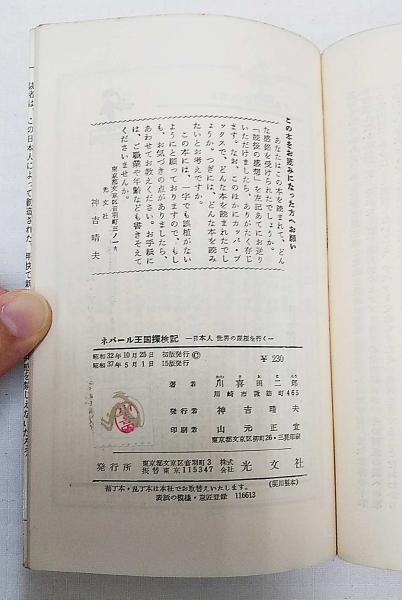 この本をお読みになった方へお願い
あなたはこの本を読まれて、どん
な感銘を受けられたでしょうか。
「読後の感想」を左記あてにお送り
いただけましたら、ありがたく存じ
ます。なお、このほかにカッパ・ブ
ックスで、どんな本を読まれたでし
ょうか。つぎには、どんな本を読み
たいとお考えですか。
この本には、一字でも誤植がない
ようにと願っておりますので、もし
も、お気づきの点がありましたら、
あわせてお教えください。お手紙に
は、ご職業や年齢なども書きそえて
くださいませんか。
東京都文京区音羽町三ノ一九
光文社
神吉晴夫
ネパール王国探検記 —日本人 世界の屋根を行く—
昭和32年10月25日 初版発行 ©
昭和37年5月1日 15版発行
¥ 230
著者 川喜田二郎
川崎市諏訪町465
発行者 神吉晴夫
印刷者 山元正宜
東京都文京区柳町26・三晃印刷
発行所 東京都文京区音羽町3 振替東京115347 株式会社 光文社
落丁本・乱丁本は本社でお取替えいたします。
表紙の模様・意匠登録 116613
読者は、この日本人によって創造された、軽快で新